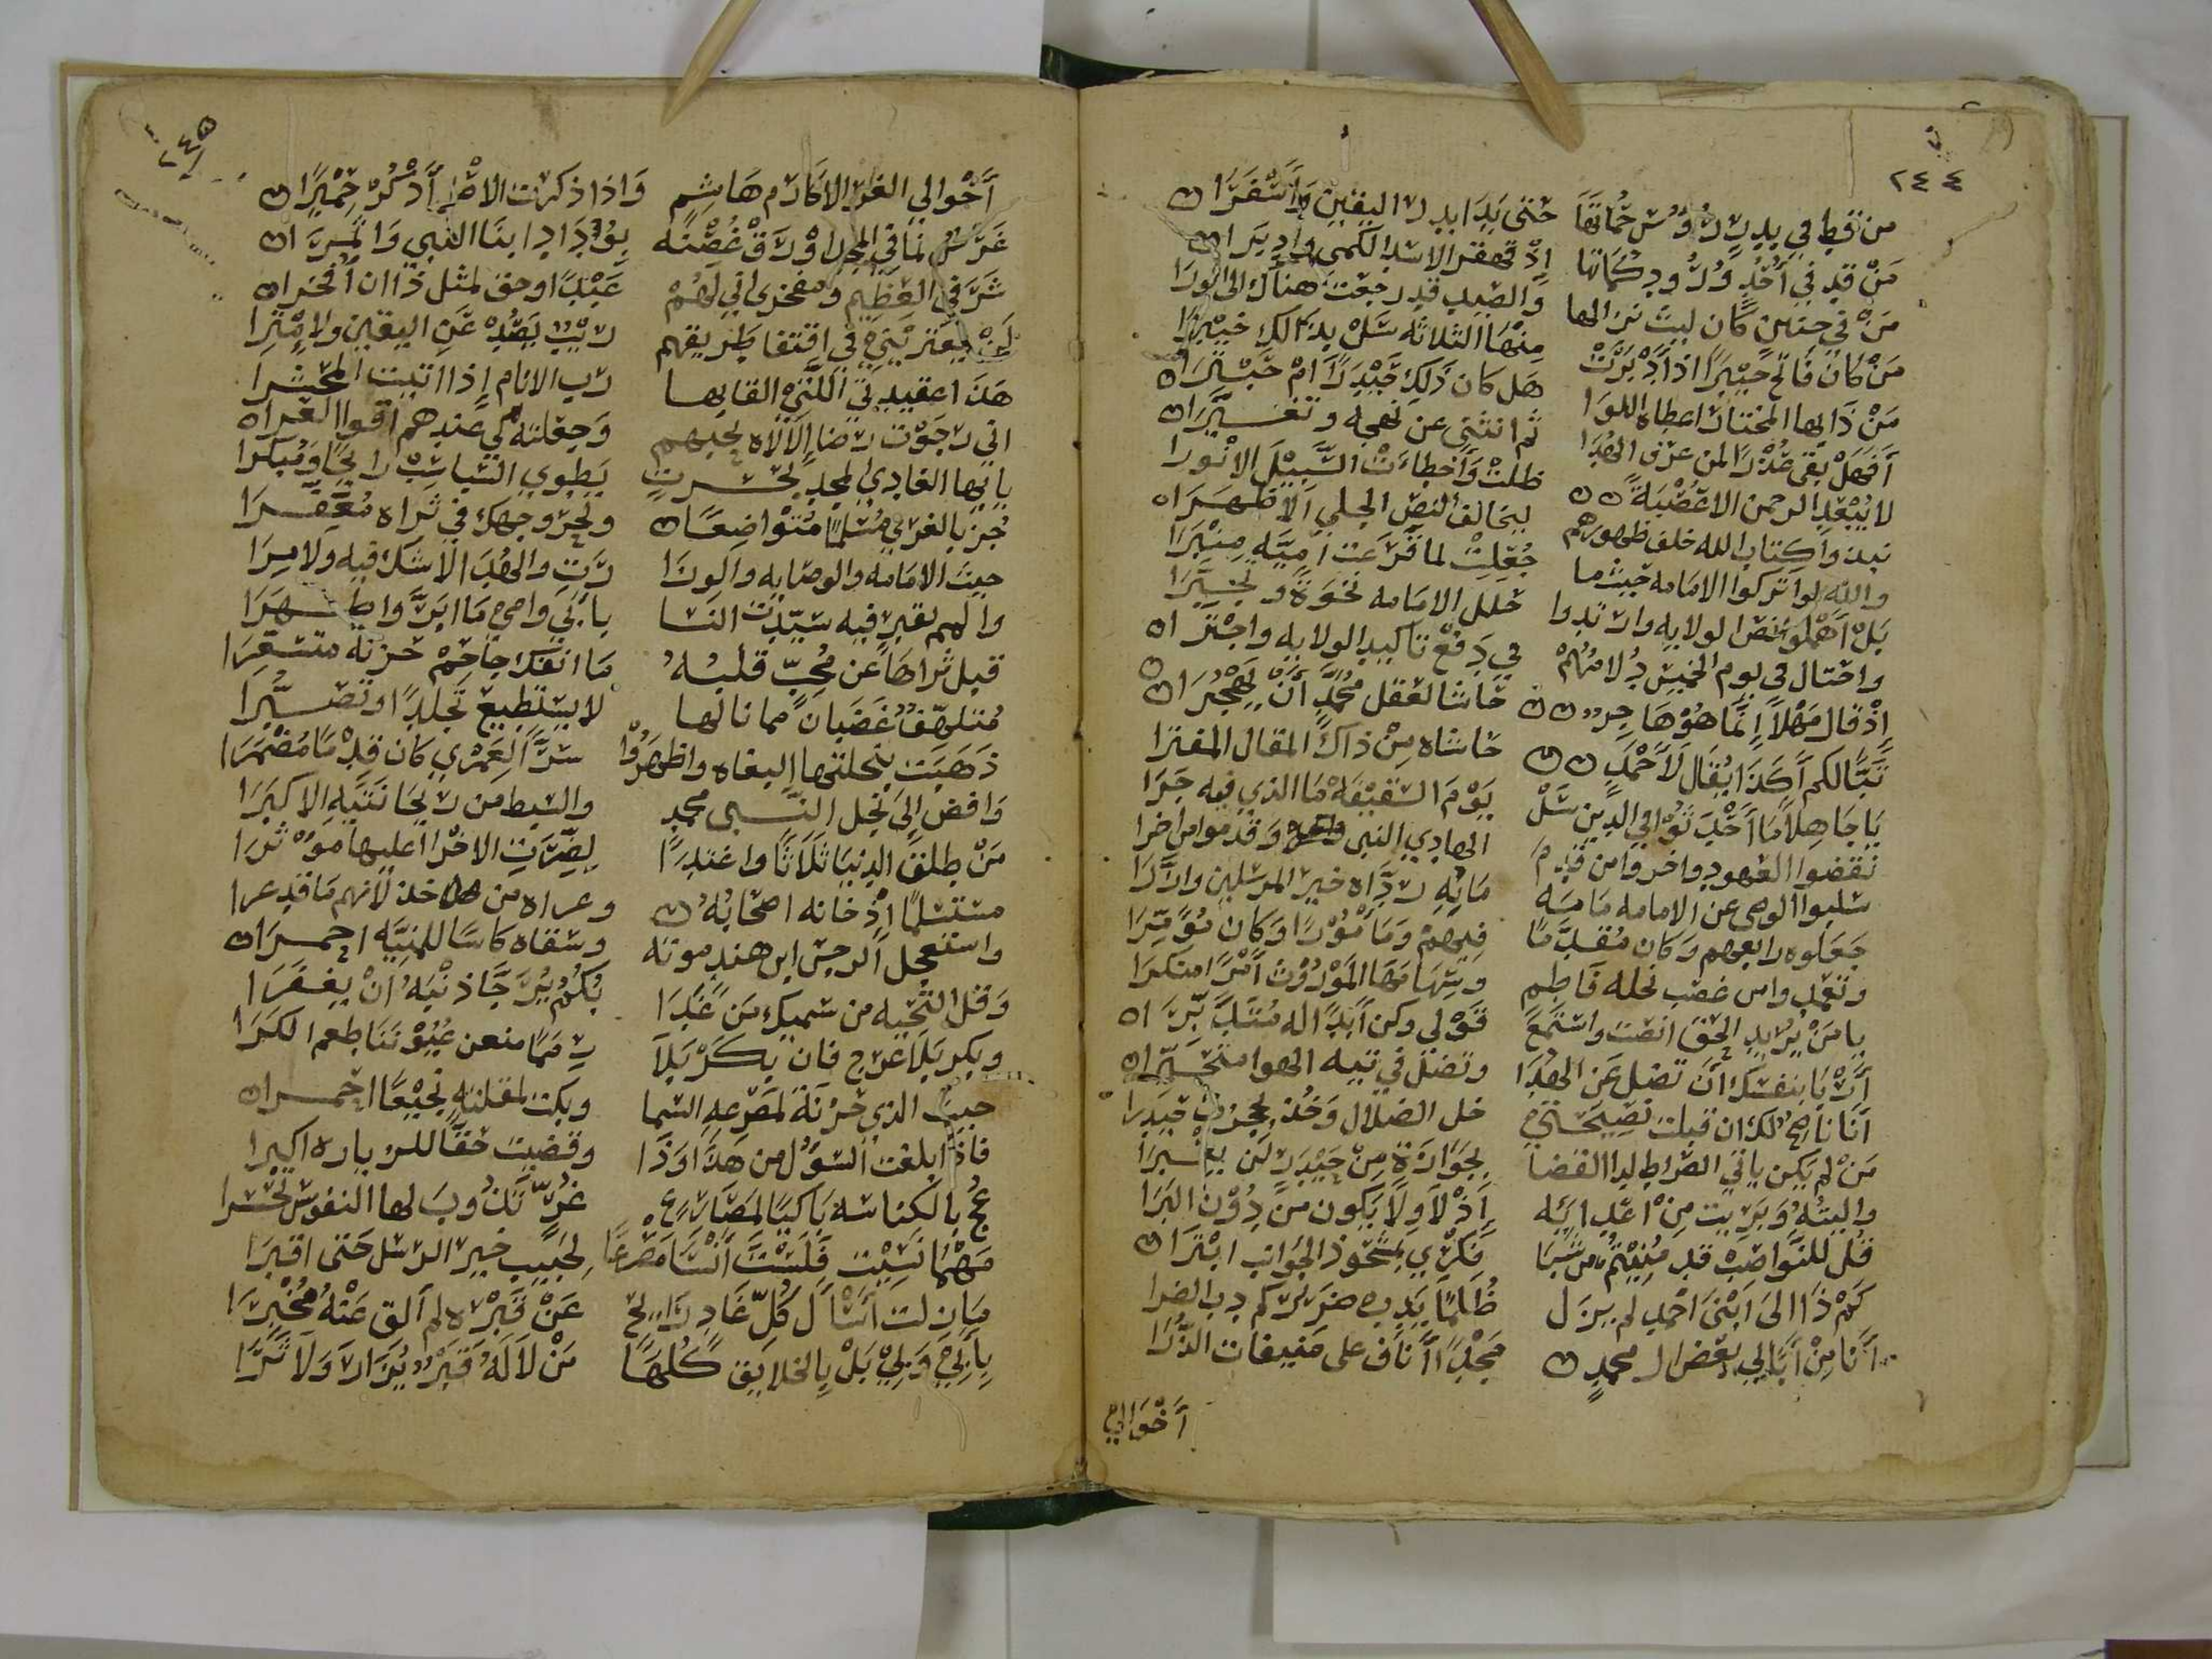 ٢٤٤
من قط في بدر رؤس حماتها حتى بدا بدر اليقين واسفرا
من قد في أحد ورود كماتها إذ قهقر الاسد الكمي وادبرا
من في حنين كان ليث نزالها والصيد قد رجعت هناك الى الورا
من كان فاتح خيبرا اذ أدبرت منها الثلاثه سل بذالك خيبرا
من ذا بها المختار اعطاه اللوا هل كان ذلك حيدرا ام حبترا
أفهل بقى عذرا لمن عرف الهدا ثم انثنى عن نهجه وتغيرا
لا يبعد الرحمن الا عصبة ظلت وأخطات السبيل الانورا
نبذوا كتاب الله خلف ظهورهم ليخالف النص الجلي الاظهرا
والله لو تركوا الامامه حيثما جعلت لما قرعت امية منبرا
بل أهملوا نص الولايه وارتدوا حلل الامامه نخوة وتجبرا
واحتال في يوم الخميس دلامهم في دفع تاكيد الولايه واجترا
إذ قال مهلا إنما هو هاجر حاشا لعقل محمد أن يهجرا
تبا لكم أكذا يقال لأحمد حاشاه من ذاك المقال المفترا
يا جاهلا ما أحدثوا في الدين سل يوم السقيفة ما الذي فيه جرا
نقضوا العهود واخروا من قدم الهادي النبي وقدموا من اخرا
سلبوا الوصي عن الامامه ما به رداه خير المرسلين وازرا
جعلوه رابعهم وكان مقدما فيهم ومامورا وكان مؤمرا
وتعمدوا من غصب نحله فاطم وسهامها الموروث أمرا منكرا
يا من يريد الحق انصت واستمع قولي وكن أبدا له متدبرا
أربا بنفسك أن تضل عن الهدا وتضل في تيه الهوا متحيرا
أنا ناصح لك ان قبلت نصيحتي خل الضلال وخذ بحجزة حيدرا
من لم يكن ياتي الصراط لدا القضا بجوازة من حيدر لن يعبرا
واليته وبريت من اعدائه إذ لا ولا يكون من دون البرا
قل للنواصب قد منيتم من شبا فكري بمشحوذ الجوانب ابترا
كم ذا الى أبنى احمد لم يزل ظلما يدب ضريركم دب الضرا
أنا من أبا لي بغض ال محمد مجدا أناف على منيفات الذرا
أخوالي
٢٤٥
أخوالي الغر الاكارم هاشم واذا ذكرت الاصل أذكر حميرا
غرس نما في المجد اورق غصنه بوداد ابنا النبي واثمرا
شرفي العظيم ومفخري اني لهم عبدا وحق لمثل ذا ان أفخرا
لن يعتريني في اقتفا طريقهم ريب يصد عن اليقين ولا امترا
هذا عقيدتي اللتي القا بها رب الانام إذا اتيت المحشرا
اني رجوت رضا الاله بحبهم وجعلته لي عندهم اقوا العرا
يا ايها الغادي المجد بحسرة يطوي السباسب رايحا ومبكرا
جز بالغري مسلما متواضعا ولحر وجهك في ثراه معفرا
حيث الامامه والوصايه والورا رت والهدا لا شك فيه ولا مرا
والمم بقبر فيه سيدت النسا بابي وامي ما ابر واطهرا
قبل ثراها عن محب قلبه ما انفك جاحم حزنه متسعرا
متلهف غضبان مما نالها لا يستطيع تجلدا وتصبرا
ذهبت بنحلتها البغاه واظهروا سرا لعمري كان قدما مضمرا
وافض إلى نجل النبي محمد والسبط من ريحانتيه الاكبرا
من طلق الدنيا ثلاثا واغتدا لضرت الاخرا عليها مؤثرا
مستسلما إذ خانه اصحابه وعراه من خذلانهم ما قد عرا
واستعجل الرجس ابن هند موته وسقاه كاسا للمنيه احمرا
وقل التحيه من سميك من غدا بكم يرجا ذنبه أن يغفرا
وبكربلا عرج فان بكربلا رمما منعن عيوننا طعم الكرا
حيث الذي حزنة لمصرعه السما وبكت لمقتله نجيعا احمرا
فاذا بلغت السؤل من هذا وذا وقضيت حقا للزياره اكبرا
عج بالكناسه باكيا لمصارع غر تذوب لها النفوس تحسرا
مهما نسيت فلست أنسا مصرعا لحبيب خير الرسل حتى اقبرا
ما زلت أسال كل غاد رايح عن قبره لم ألق عنه مخبرا
بابي وبي بل بالخلايق كلها من لا له قبر يزار ولا يرا